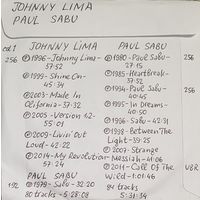 JOHNNY LIMA
PAUL SABU
cd 1
JOHNNY LIMA
256
℗1996-Johnny Lima-
37:52
℗1999-Shine On-
45:34
℗2003-Made In
California-37:32
℗2005-Version 1.2
55:01
℗2009-Livin' Out
Loud-42:22
℗2014-My Revolution
57:24
PAUL SABU
192
℗1979-Sabu-32:20
80 tracks-5:28:08
PAUL SABU
℗1980-Paul Sabu-
27:15
256
℗1985-Heartbreak-
37:52
℗1994-Paul Sabu-
40:45
℗1995-In Dreams-
40:50
℗1996-Sabu-42:31
256
℗1998-Between The
Light-39:25
℗2007-Strange
Messiah-41:06
℗2011-Call Of The
VBR
Wild-1:01:46
84 tracks
5:31:34